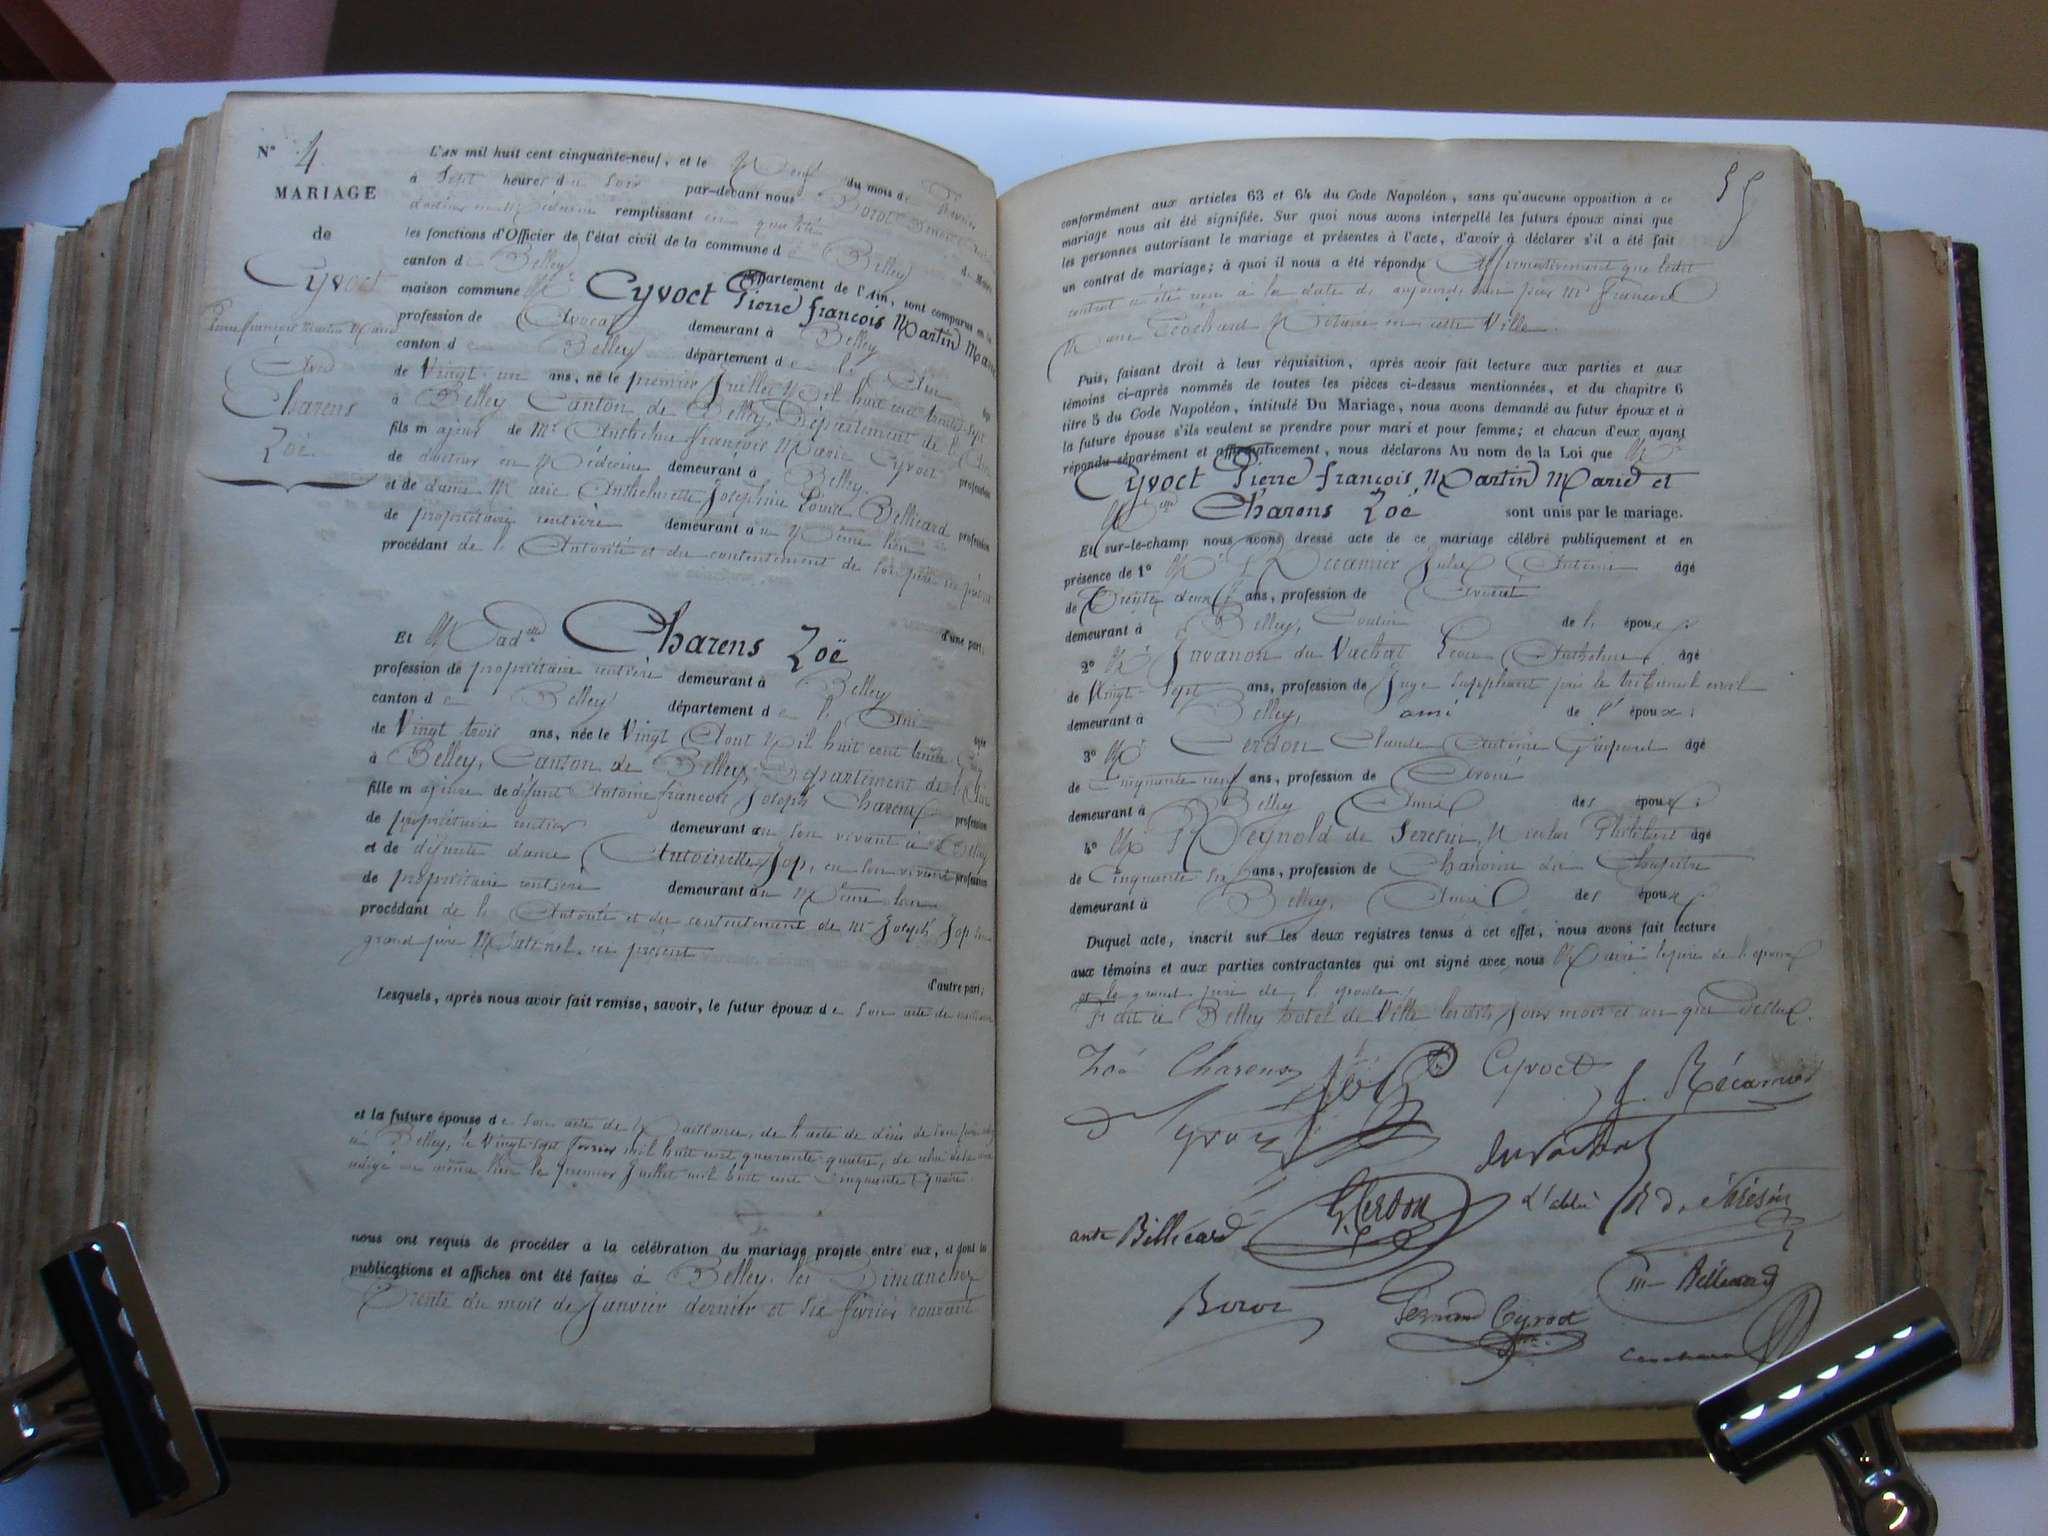 N° 4
MARIAGE
de
Cyvoct
Pierre françois Martin Marie
Avec
Charens
Zoé.
L'AN mil huit cent cinquante-neuf, et le Neuf du mois de février
à Sept heures du soir par-devant nous
docteur en Médecine remplissant en qualité de Maire
les fonctions d'Officier de l'état civil de la commune de Belley
canton de Belley département de l'Ain, sont comparus en la
maison commune Mr Cyvoct Pierre françois Martin Marie
profession de Avocat demeurant à Belley
canton de Belley département de l'Ain
de Vingt-un ans, né le premier Juillet Mil huit cent trente-sept
à Belley Canton de Belley, Département de l'Ain
fils majeur de Mr Anthelme françois Marie Cyvoct profession
de docteur en Médecine demeurant à Belley.
et de dame Marie Anthelmette Joséphine Louise Bellicard profession
de propriétaire rentière demeurant au Même lieu
procédant de l'Autorité et du consentement de son père ici présent
d'une part;
Et Madelle Charens Zoë
profession de propriétaire rentière demeurant à Belley
canton de Belley département de l'Ain
de Vingt trois ans, née le Vingt Aout Mil huit cent trente cinq
à Belley, Canton de Belley, Département de l'Ain
fille majeure de défunt Antoine françois Joseph Charens profession
de propriétaire rentier demeurant en son vivant à Belley
et de défunte dame Antoinette Jop, en son vivant profession
de propriétaire rentière demeurant au Même lieu
procédant de l'Autorité et du contentement de mr Joseph Jop son
grand père Maternel, ici présent
d'autre part;
Lesquels, après nous avoir fait remise, savoir, le futur époux de son acte de naissance
et la future épouse de son acte de Naissance, de l'acte de décès de son père
à Belley, le Vingt-sept février mil huit cent quarante-quatre, de celui de sa mère
rédigé au même lieu le premier Juillet mil huit cent Cinquante Quatre.
nous ont requis de procéder à la célébration du mariage projeté entre eux, et dont les
publications et affiches ont été faites à Belley, les Dimanches
Trente du mois de Janvier dernier et six février courant
55
conformément aux articles 63 et 64 du Code Napoléon, sans qu'aucune opposition à ce
mariage nous ait été signifiée. Sur quoi nous avons interpellé les futurs époux ainsi que
les personnes autorisant le mariage et présentes à l'acte, d'avoir à déclarer s'il a été fait
un contrat de mariage; à quoi il nous a été répondu Affirmativement que ledit
contrat a été reçu à la date de aujourd'hui par Mr francois
Marie Cochard Notaire en cette Ville.
Puis, faisant droit à leur réquisition, après avoir fait lecture aux parties et aux
témoins ci-après nommés de toutes les pièces ci-dessus mentionnées, et du chapitre 6
titre 5 du Code Napoléon, intitulé Du Mariage, nous avons demandé au futur époux et à
la future épouse s'ils veulent se prendre pour mari et pour femme; et chacun d'eux ayant
répondu séparément et affirmativement, nous déclarons Au nom de la Loi que Mr
Cyvoct Pierre françois Martin Marie et
Melle Charens Zoé sont unis par le mariage.
Et sur-le-champ nous avons dressé acte de ce mariage célébré publiquement et en
présence de 1° Mr Récamier Jules Antoine âgé
de Trente deux ans, profession de Avocat
demeurant à Belley, Cousin de l'époux;
2° Mr Javanon du Vachat Léon Anthelme, âgé
de Vingt-sept ans, profession de Juge suppléant près le tribunal civil
demeurant à Belley, ami de l'époux;
3° Mr Cerdon Claude Antoine Gaspard âgé
de Cinquante neuf ans, profession de Avoué
demeurant à Belley Ami des époux;
4° Mr Reynold de Seresin, Nicolas Philibert âgé
de Cinquante six ans, profession de Chanoine du Chapitre
demeurant à Belley, Ami des époux
Duquel acte, inscrit sur les deux registres tenus à cet effet, nous avons fait lecture
aux témoins et aux parties contractantes qui ont signé avec nous Maire le père de l'époux
et le grand père de l'épouse,
Fait à Belley hôtel de Ville lesdits jour mois et an que dessus.
Zoé Charens Jop Cyvoct J. Récamier
Cyvoct duvachat
G. Cerdon L'abbé R. d. Sérésin
ante Billicard
Fernand Cyvoct
Cochard